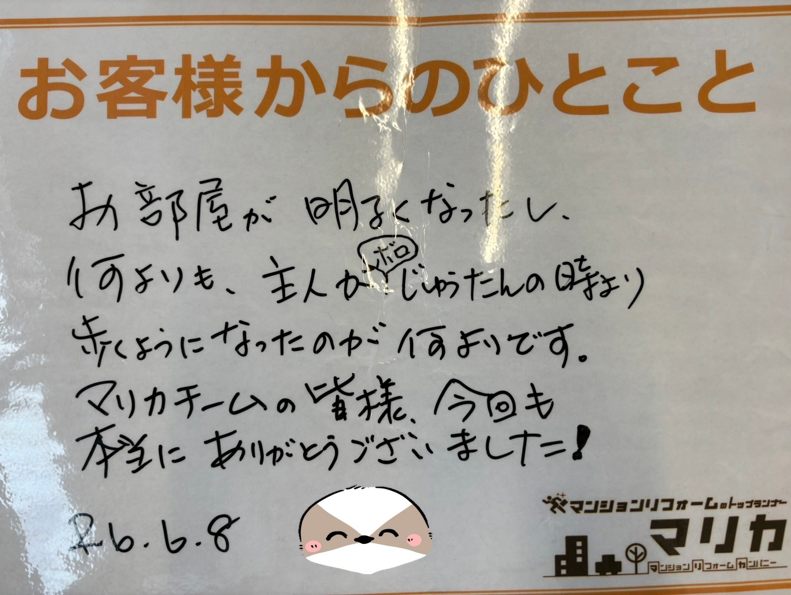 お客様からのひとこと
お部屋が明るくなったし、
何よりも、主人がボロじゅうたんの時より
歩くようになったのが何よりです。
マリカチームの皆様、今回も
本当にありがとうございました!
26.6.8
マンションリフォームのトップランナー
マリカ
マンションリフォームカンパニー